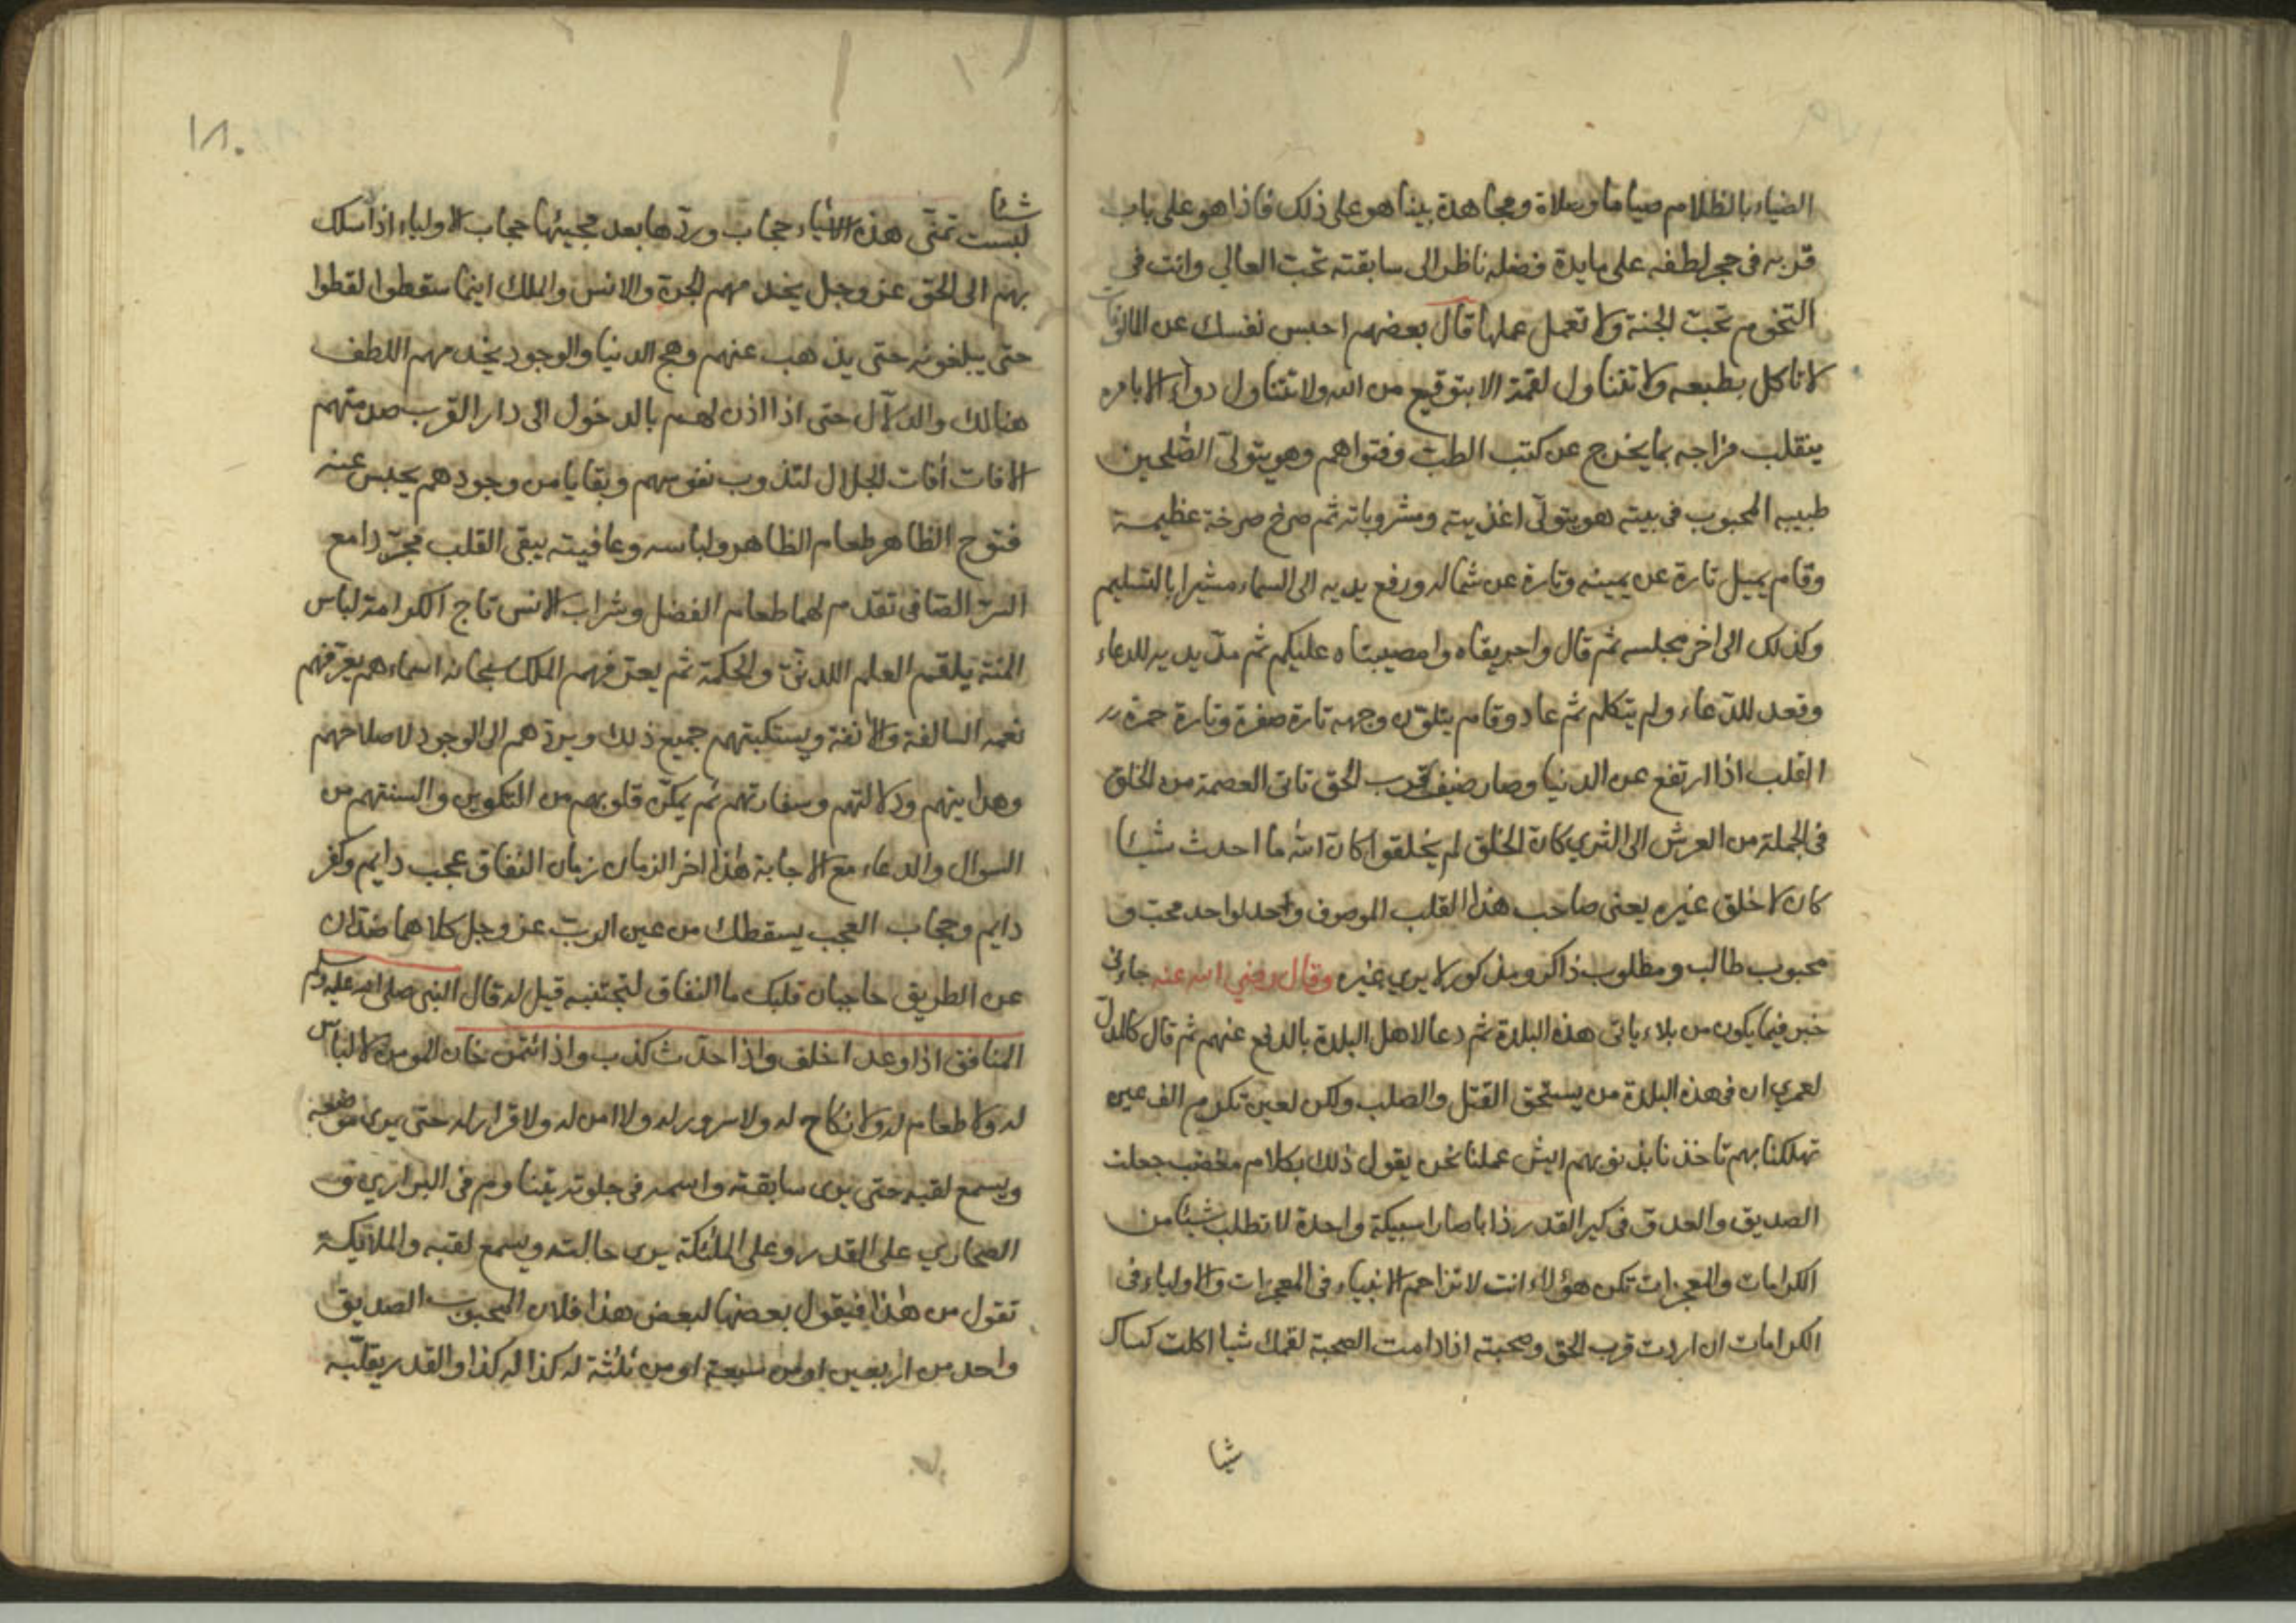 الضياء بالظلام صياما وصلاة ومجاهدة بينا هو على ذلك فاذا هو على باب
قربه في حجر لطفه على مايدة فضله ناظر الى سابقته تحت العالي وانت في
التخوم تحت الجنة ولا تعمل عملها قال بعضهم احبس نفسك عن المالوفات
لا تاكل بطبعه ولا تتناول لقمة الا بتوقيع من الله ولا تتناول دواء الا بامره
ينقلب مزاجه بما يخرج عن كتب الطب وفتواهم وهو يتولى الصلحين
طبيبه المحبوب في بيته هو يتولى اغذيته ومشروباته ثم صرخ صرخة عظيمة
وقام يميل تارة عن يمينه وتارة عن شماله ورفع يديه الى السماء مشيرا بالتسليم
وكذلك الى اخر مجلسه ثم قال واحريقاه وامصيبتاه عليكم ثم مد يديه للدعاء
وقعد للدعاء ولم يتكلم ثم عاد وقام يتلون وجهه تارة صفرة وتارة حمرة
القلب اذا ارتفع عن الدنيا وصار ضيف قرب الحق تاتى العصمة من الخلق
في الجملة من العرش الى الثري كان الخلق لم يخلقوا كان الله ما احدث شيئا
كان لا خلق غيره يعنى صاحب هذا القلب الموصوف واحد لواحد محب و
محبوب طالب ومطلوب ذاكر ومذكور لا يري غيره وقال رضي الله عنه جاءني
خبر فيما يكون من بلاء ياتى هذه البلدة ثم دعا لاهل البلدة بالدفع عنهم ثم قال
لعمري ان في هذه البلدة من يستحق القتل والصلب ولكن لعين تكرم الف عين
تهلكنا بهم تاخذنا بذنوبهم ايش عملنا نحن يقول ذلك بكلام مغضب جعلت
الصديق والعدق في كير القدر ذابا صارا سبيكة واحدة لا تطلب شيئا من
الكرامات والمعجزات تكن هؤلاء انت لا تزاحم الانبياء في المعجزات والاولياء في
الكرامات ان اردت قرب الحق وصحبته اذا دامت الصحبة لقمك شيا اكلت كساك
شيا
١٨٠
شيئا
لبست تمنى هذه الاشياء حجاب وردها بعد مجيئها حجاب الاولياء اذا سلك
بهم الى الحق عز وجل يخدمهم الجن والانس والملك اينما سقطوا لقطوا
حتى يبلغونه حتى يذهب عنهم وهج الدنيا والوجود يخدمهم اللطف
هنالك والدلال حتى اذا اذن لهم بالدخول الى دار القرب صدمتهم
الافات افات الجلال لتذوب نفوسهم وبقايا من وجودهم يحبس عنه
فتوح الظاهر طعام الظاهر ولباسه وعافيته يبقى القلب مجردا مع
السر الصافى تقدم لهما طعام الفضل وشراب الانس تاج الكرامة لباس
المنة يلقمه العلم اللدني والحكمة ثم يعرفهم الملك سبحانه اسماءهم يعرفهم
نعمه السالفة والانفة ويستكتبهم جميع ذلك ويردهم الى الوجود لاصلاحهم
وهدايتهم ودلالتهم وسفارتهم ثم يمكن قلوبهم من التكوين والسنتهم من
السوال والدعاء مع الاجابة هذا اخر الزمان زمان النفاق عجب دايم وكفر
دايم وحجاب العجب يسقطك من عين الرب عز وجل كلاهما ضدان
عن الطريق حاجبان قلبك ما النفاق لتجتنبه قيل له قال النبي صلى الله عليه وسلم
المنافق اذا وعد اخلف واذا حدث كذب واذا ائتمن خان المومن لا لباس
له ولا طعام له ولا نكاح له ولا سرور له ولا امن له ولا قرار له حتى يرى موضعه
ويسمع لقبه حتى يرى سابقته واسمه في جلوته يتناوم في البراري و
الصحاري على القدر وعلى الملئكة يرى حالته ويسمع لقبه والملائكة
تقول من هذا فيقول بعضها لبعض هذا فلان المحبوب الصديق
واحد من اربعين او من سبعة او من ثلثة له كذا له كذا والقدر يقلبه